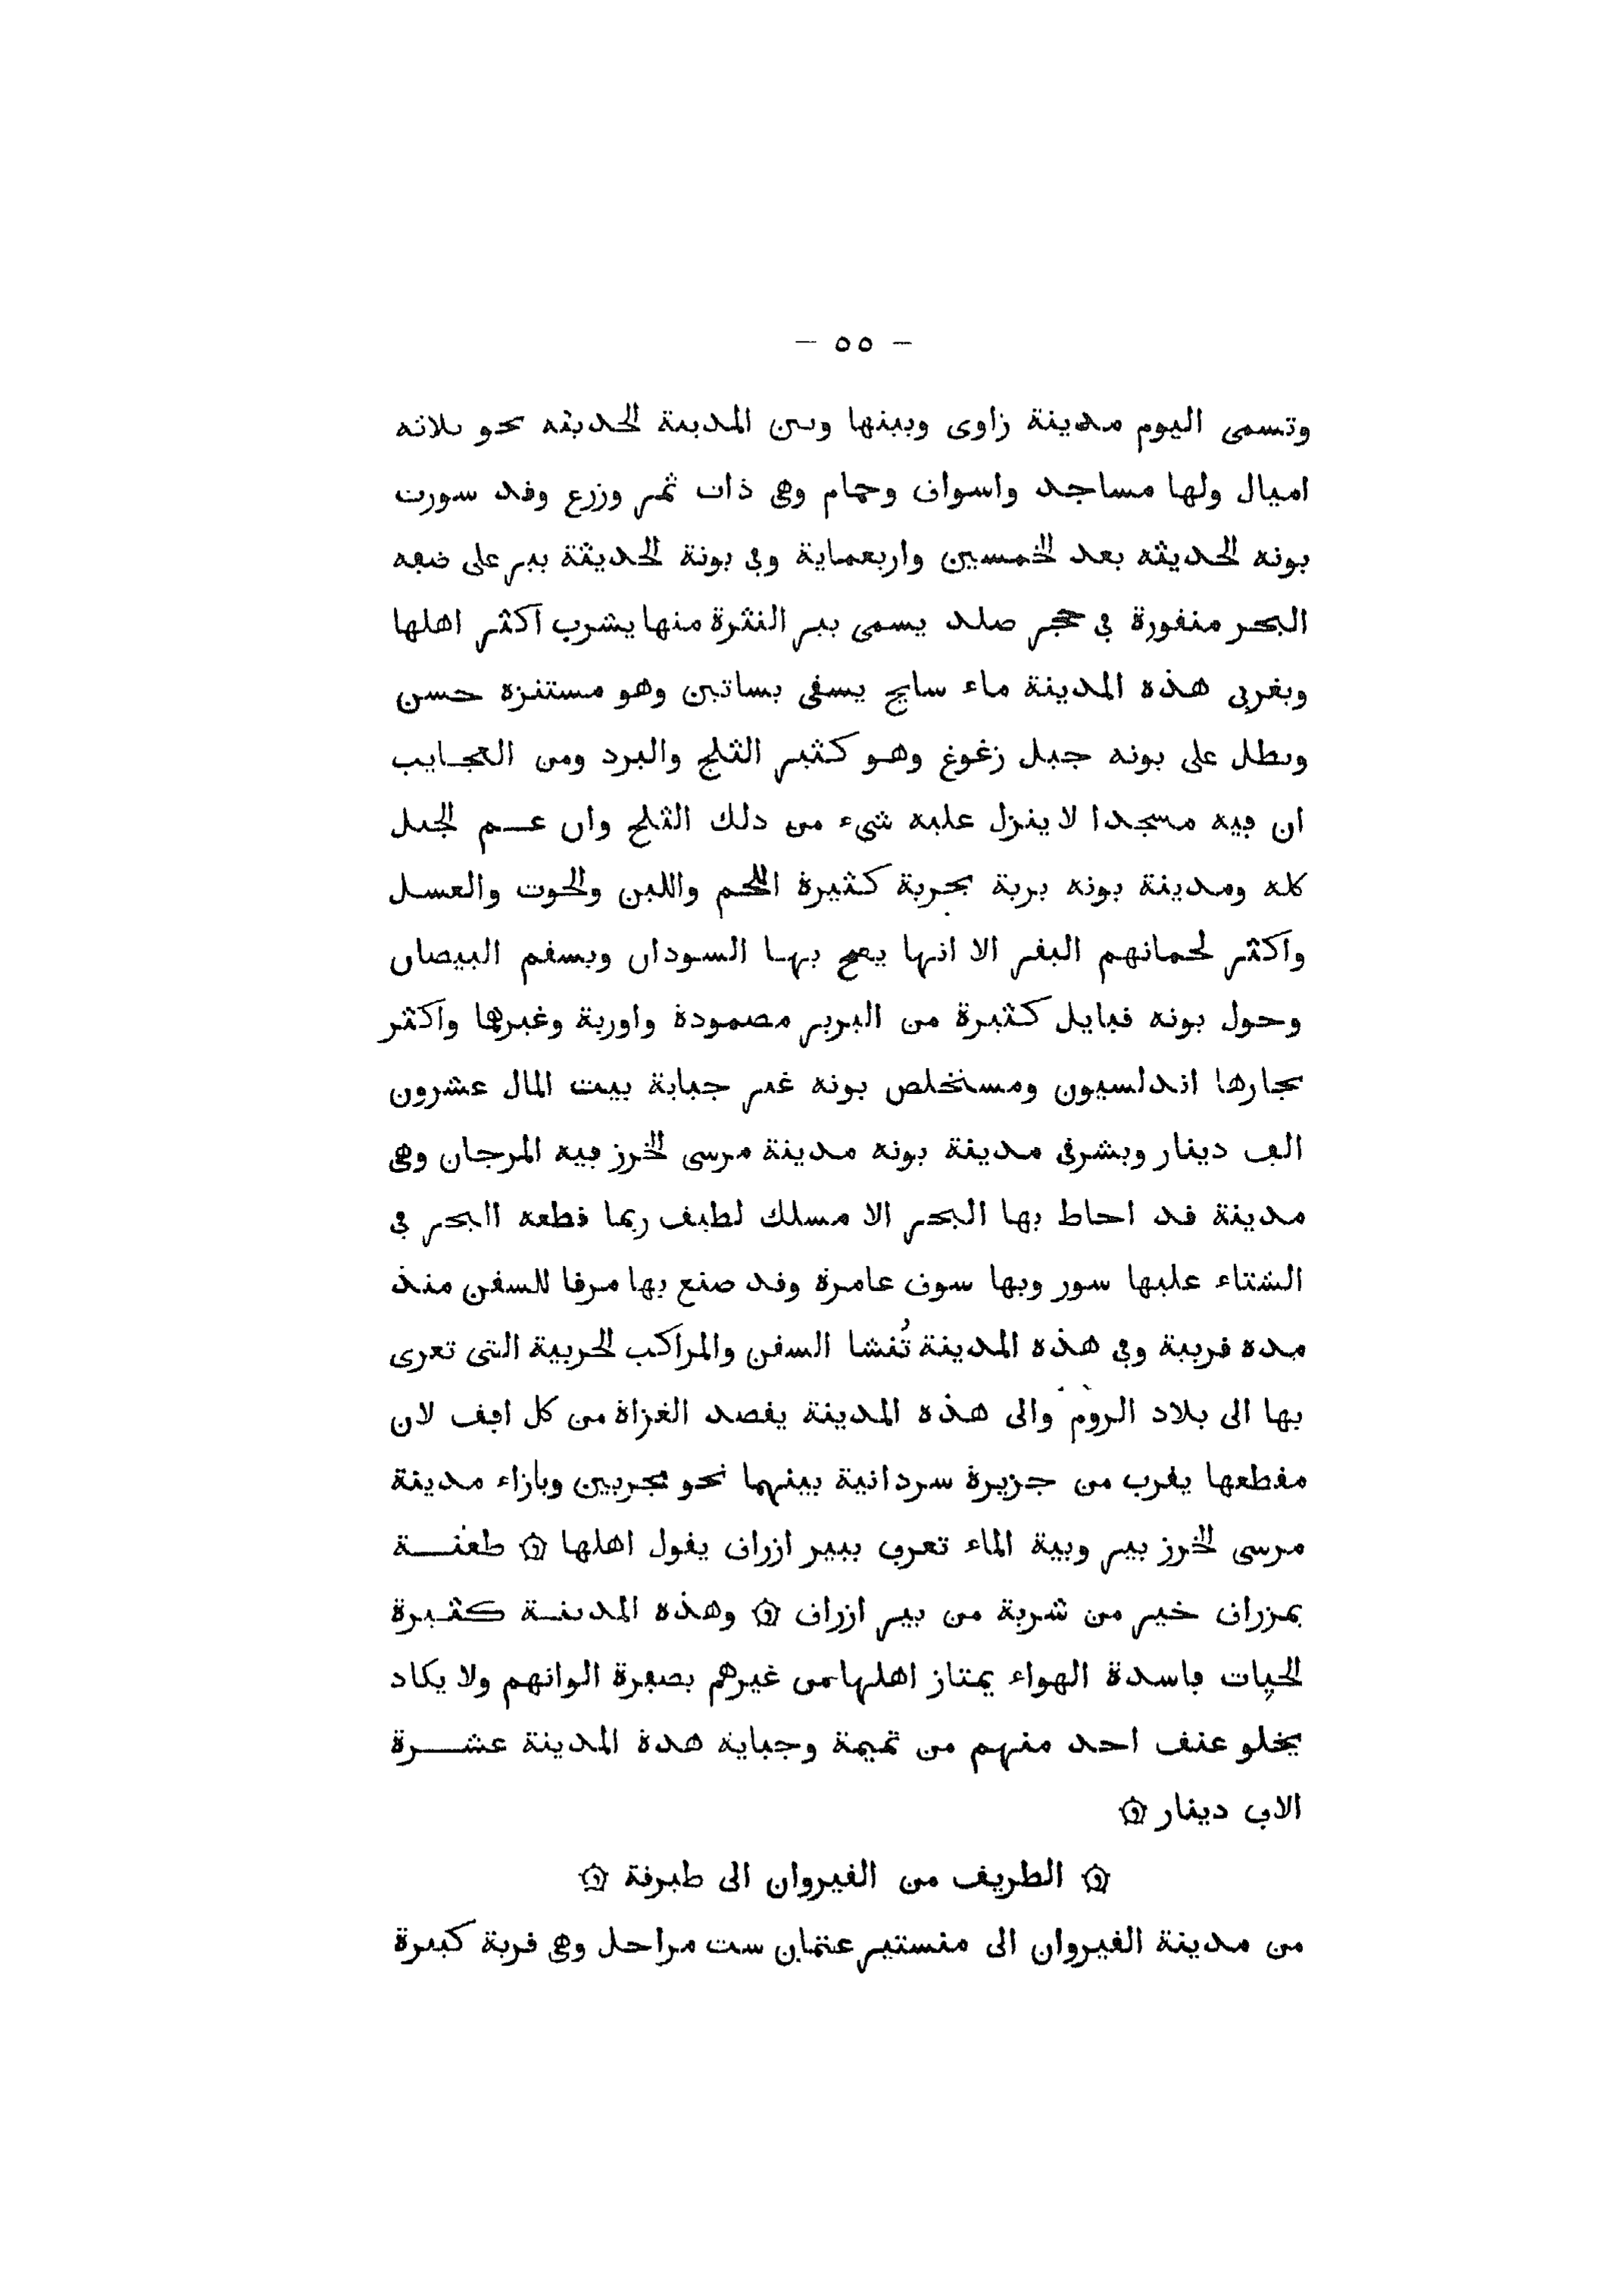 - ٥٥ -
وتسمى اليوم مدينة زاوى وبينها وبين المدينة الحديثه نحو ثلاثه
اميال ولها مساجد واسواق وحمام وهى ذات ثمر وزرع وقد سورت
بونه الحديثه بعد الخمسين واربعماية وفى بونة الحديثة بير على ضفه
البحر منقورة فى حجر صلد يسمى بير النثرة منها يشرب اكثر اهلها
وبغربى هذه المدينة ماء سايح يسقى بساتين وهو مستنزه حسن
ويطل على بونه جبل زغوغ وهو كثير الثلج والبرد ومن العجايب
ان فيه مسجدا لا ينزل عليه شىء من ذلك الثلج وان عم الجبل
كله ومدينة بونه برية بحرية كثيرة اللحم واللبن والحوت والعسل
واكثر لحمانهم البقر الا انها يصح بها السودان ويسقم البيضان
وحول بونه قبايل كثيرة من البربر مصمودة واوربة وغيرها واكثر
تجارها اندلسيون ومستخلص بونه غير جباية بيت المال عشرون
الف دينار وبشرقى مدينة بونه مدينة مرسى الخرز فيه المرجان وهى
مدينة قد احاط بها البحر الا مسلك لطيف ربما قطعه البحر فى
الشتاء عليها سور وبها سوق عامرة وقد صنع بها مرفا للسفن منذ
مده قريبة وفى هذه المدينة تُنشا السفن والمراكب الحربية التى تغزى
بها الى بلاد الروم والى هذه المدينة يقصد الغزاة من كل افق لان
مقطعها يقرب من جزيرة سردانية بينهما نحو مجريين وبازاء مدينة
مرسى الخرز بير وبية الماء تعرف ببير ازراق يقول اهلها ۞ طعنة
بمزراق خير من شربة من بير ازراق ۞ وهذه المدينة كثيرة
الحيات فاسدة الهواء يمتاز اهلها من غيرهم بصفرة الوانهم ولا يكاد
يخلو عنق احد منهم من تميمة وجباية هذة المدينة عشرة
الاف دينار ۞
۞ الطريق من القيروان الى طبرقة ۞
من مدينة القيروان الى منستير عثمان ست مراحل وهى قرية كبيرة